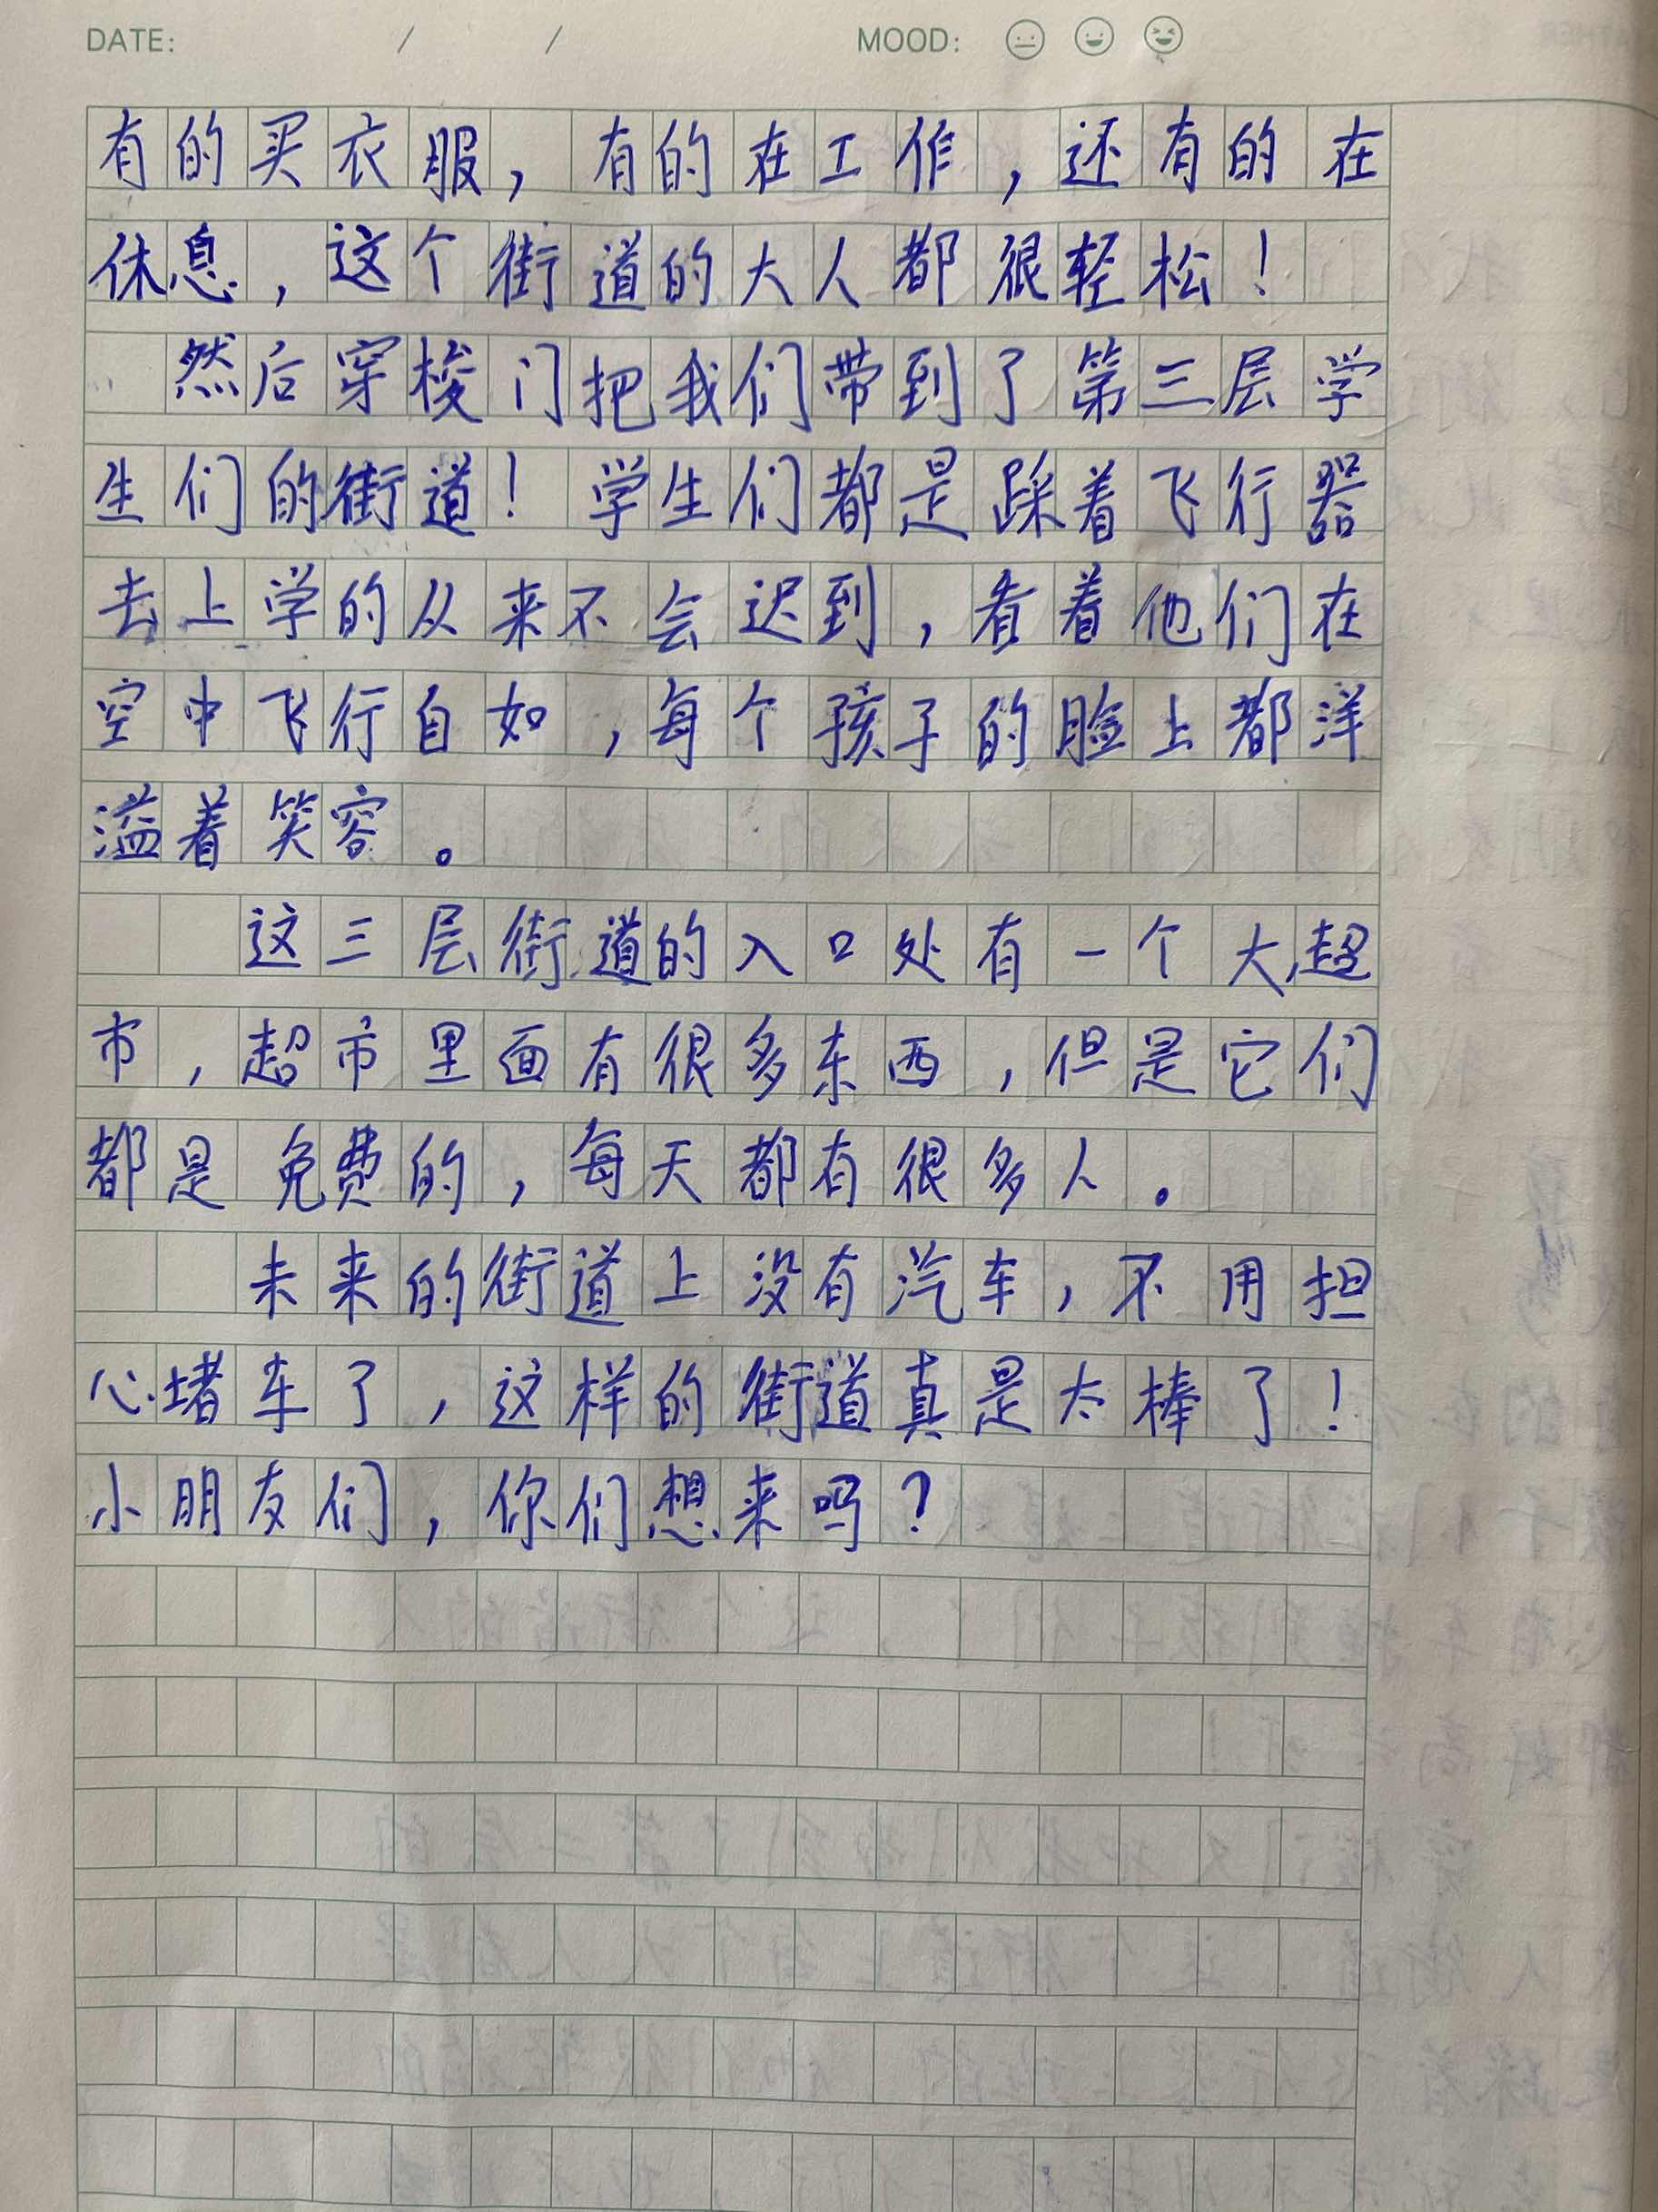 DATE: / / MOOD:
有的买衣服，有的在工作，还有的在
休息，这个街道的大人都很轻松！
然后穿梭门把我们带到了第三层学
生们的街道！学生们都是踩着飞行器
去上学的从来不会迟到，看着他们在
空中飞行自如，每个孩子的脸上都洋
溢着笑容。
这三层街道的入口处有一个大超
市，超市里面有很多东西，但是它们
都是免费的，每天都有很多人。
未来的街道上没有汽车，不用担
心堵车了，这样的街道真是太棒了！
小朋友们，你们想来吗？